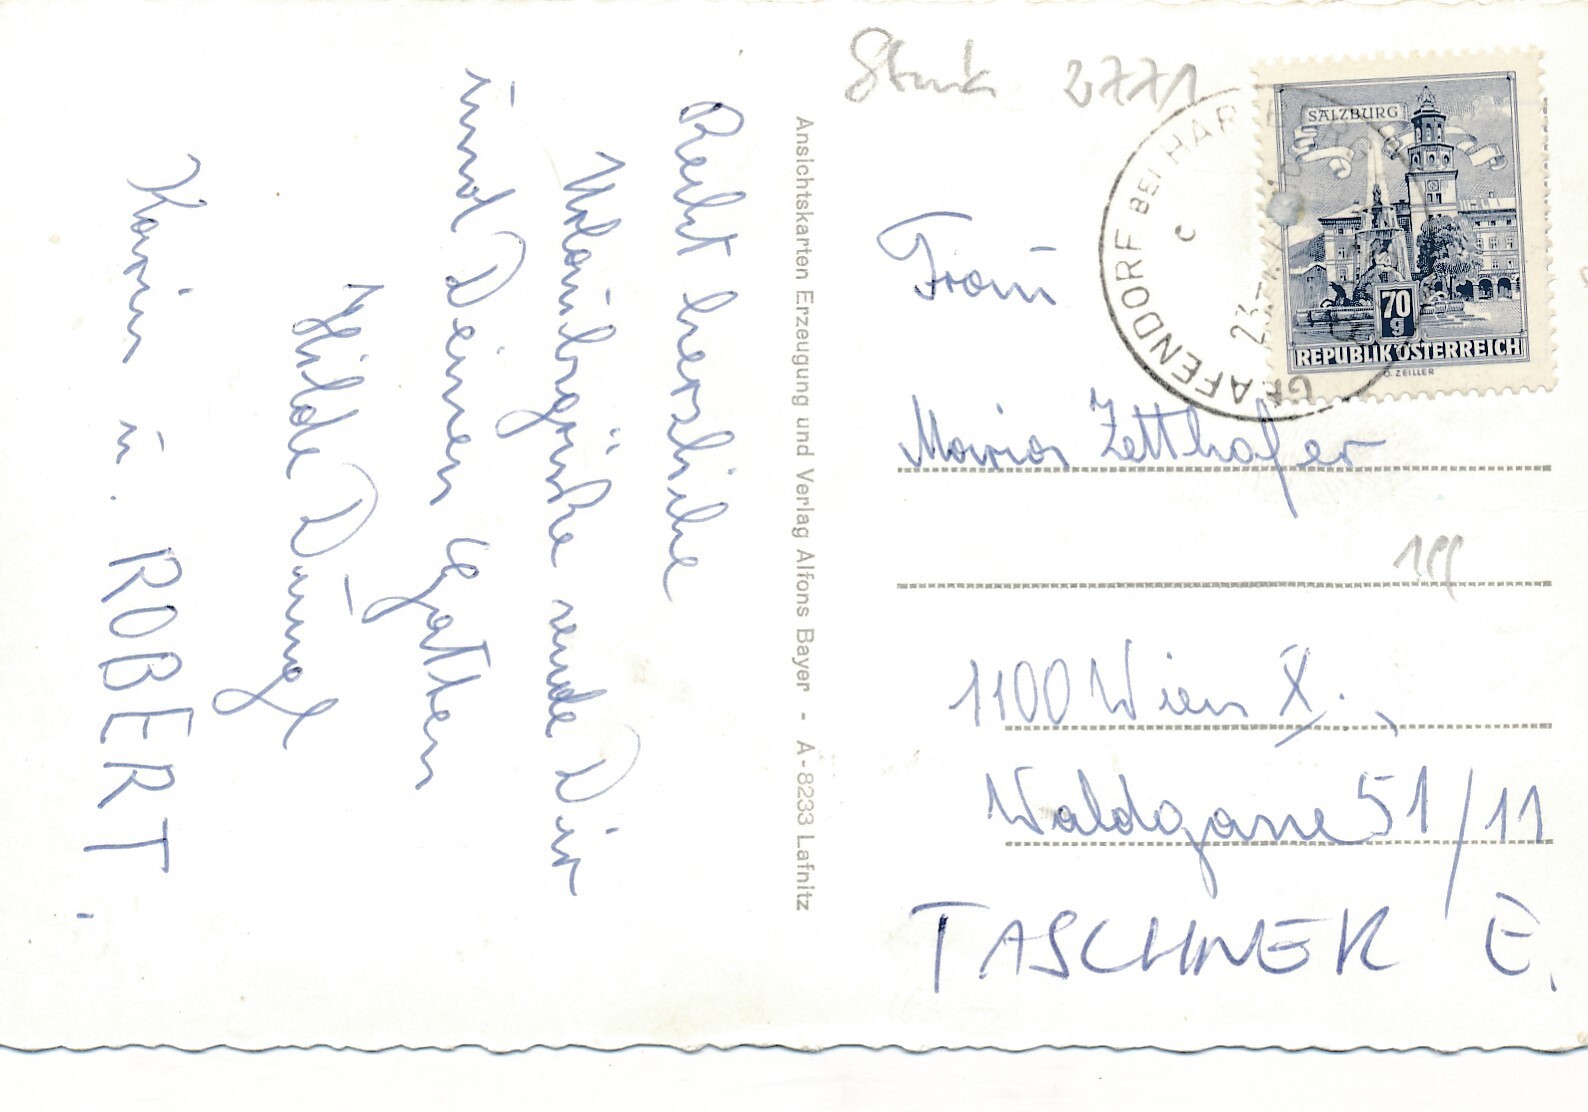 Recht herzliche
Urlaubsgrüße sende Dir
und Deinen Gatten
Hilde
Karin u. ROBERT.
Ansichtskarten Erzeugung und Verlag Alfons Bayer - A-8233 Lafnitz
2771
SALZBURG
70
g
REPUBLIK ÖSTERREICH
O. ZEILLER
GRAFENDORF BEI HARTBERG
c
23.
Frau
Maria Zetthofer
1100 Wien X.,
Waldgasse 51/11
TASCHNER E.